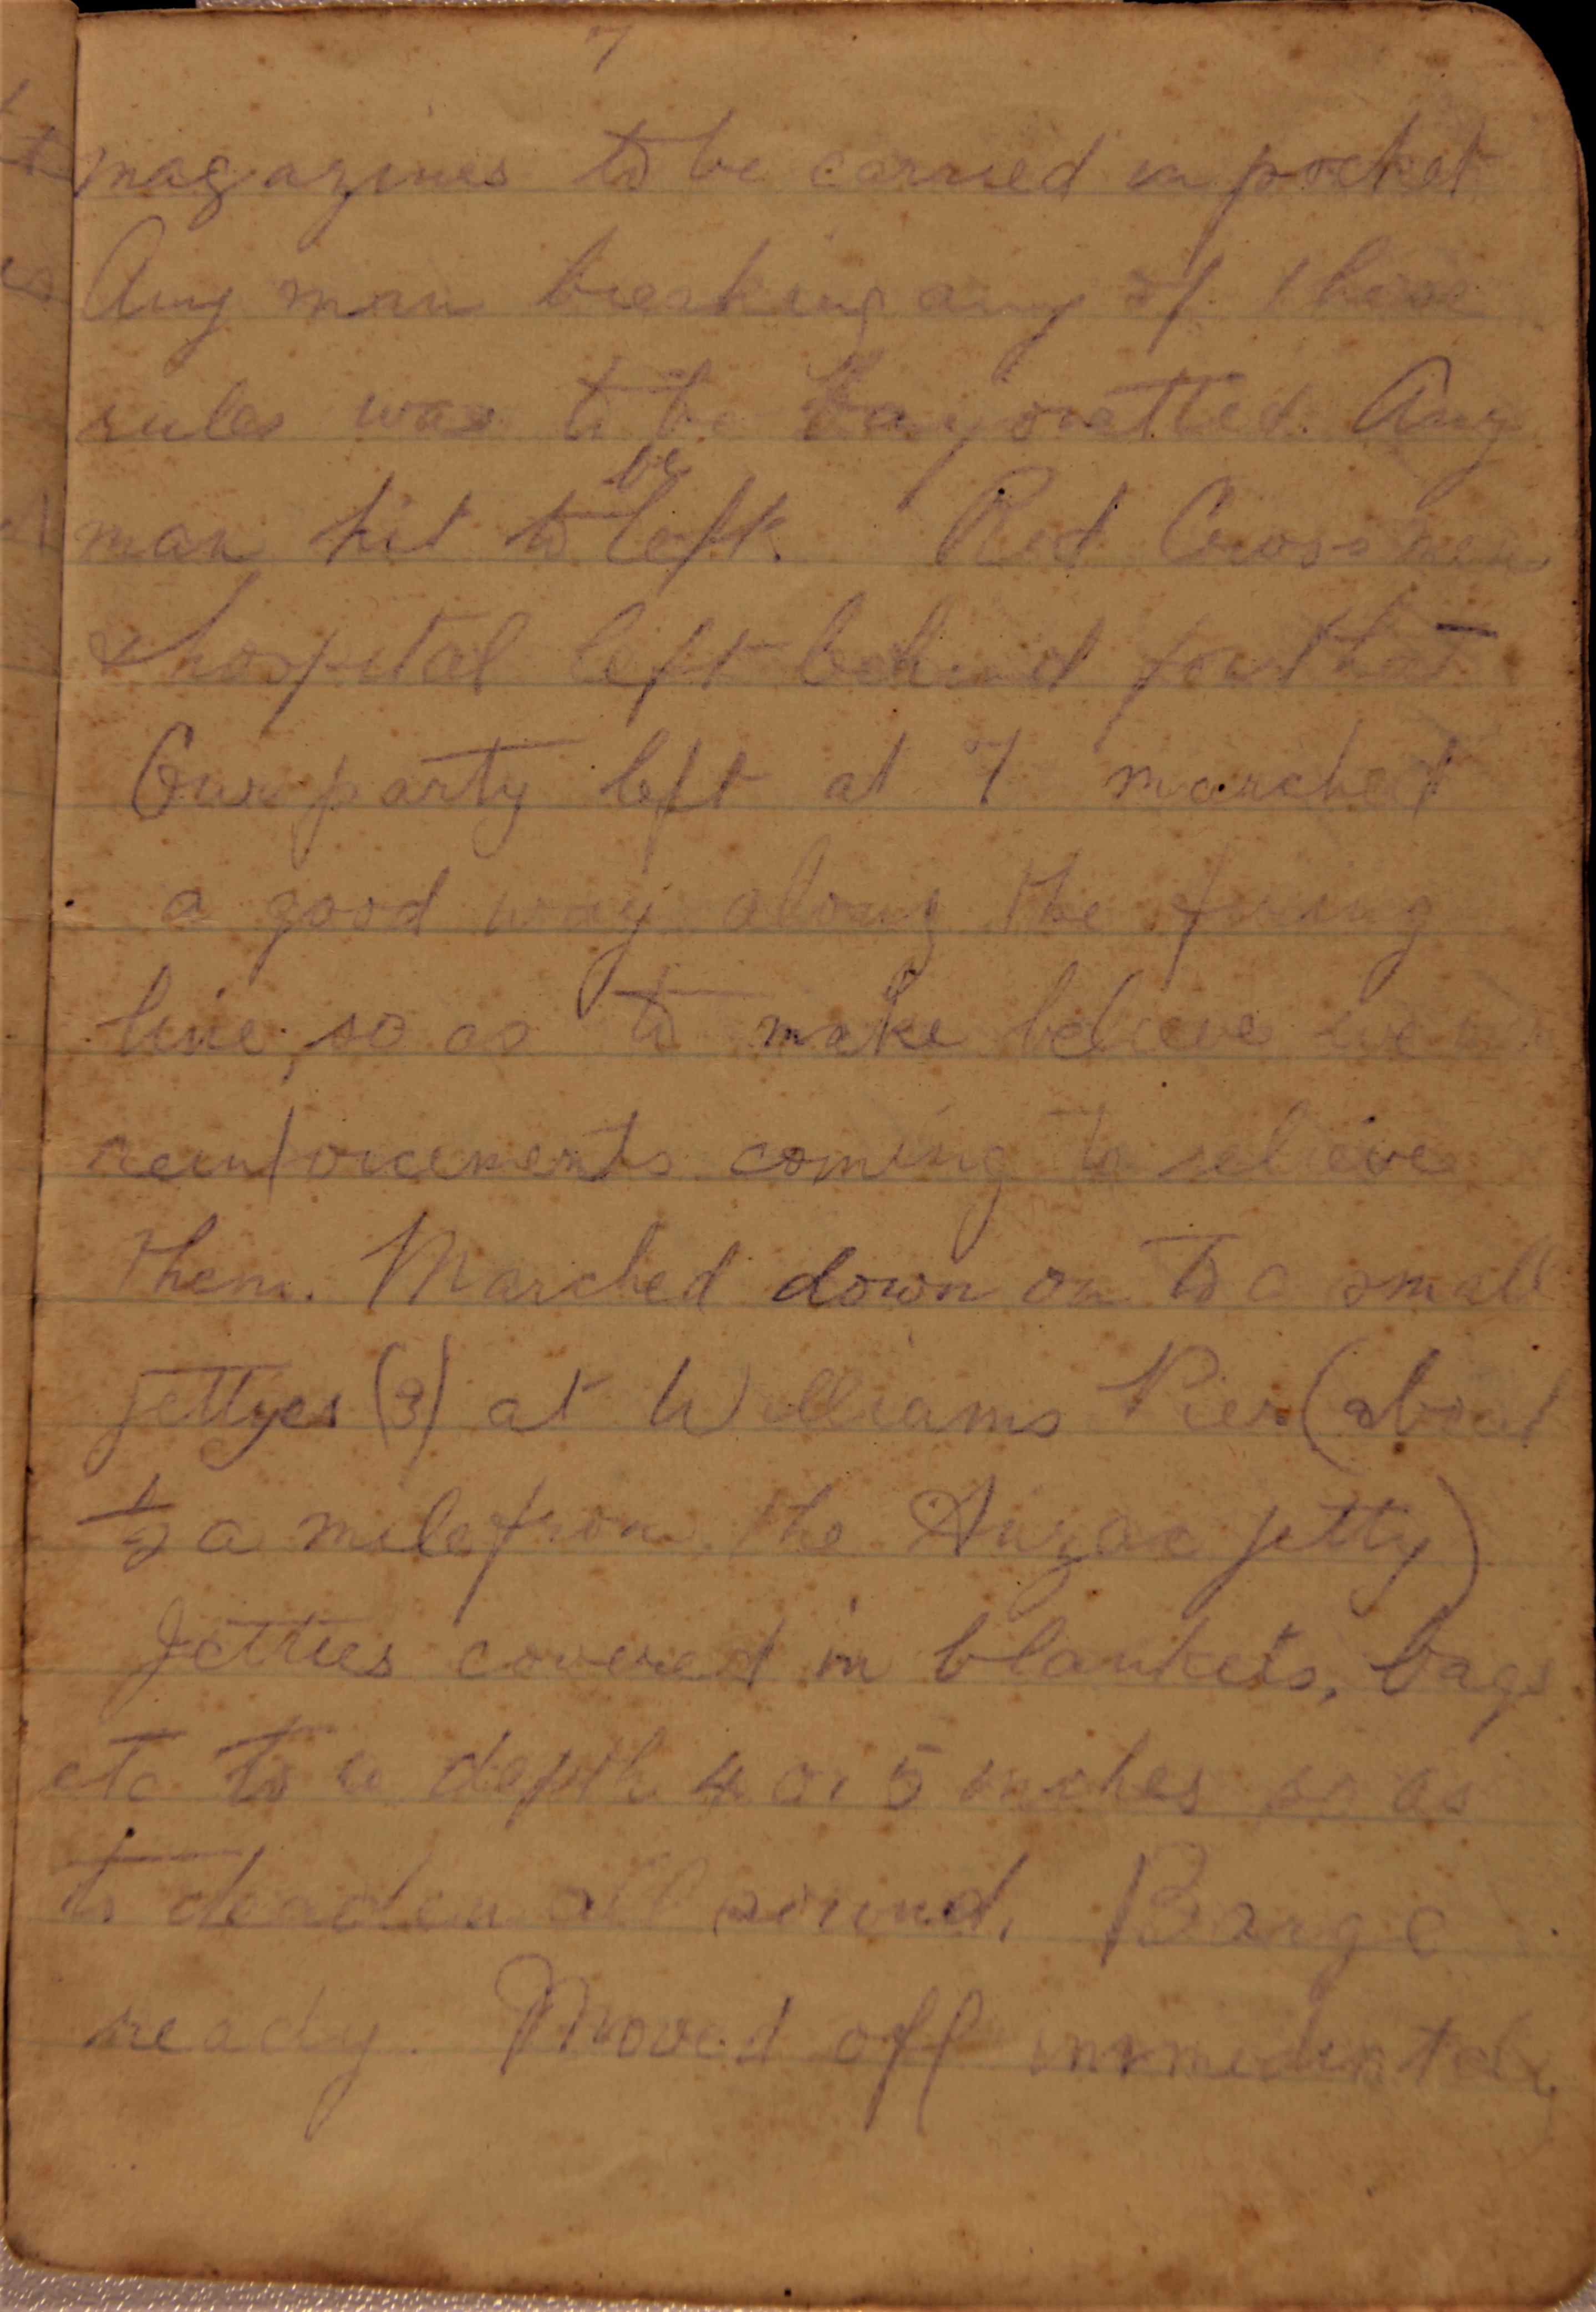 7
magazines to be carried in pocket
Any man breaking any of these
rules was to be bayonetted. Any
be
man hit to left. Red Cross men
& hospital left behind for that
Our party left at 7 marched
a good way along the firing
line, so as to make believe we
reinforcements coming to relieve
them. Marched down on to a small
jettyes (3) at Williams Pier (about
1/2 a mile from the Anzac jetty)
Jetties covered in blankets, bags
etc to a depth 4 or 5 inches so as
to deaden all sound. Barge
ready. Moved off immediately